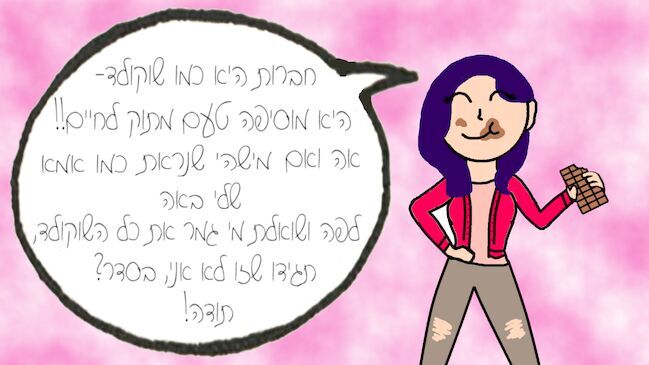 חברות היא כמו שוקולד-
היא מוסיפה טעם מתוק לחיים!!
אה ואם מישהי שנראת כמו אמא
שלי באה
לפה ושואלת מי גמר את כל השוקולד,
תגידו שזו לא אני, בסדר?
תודה!